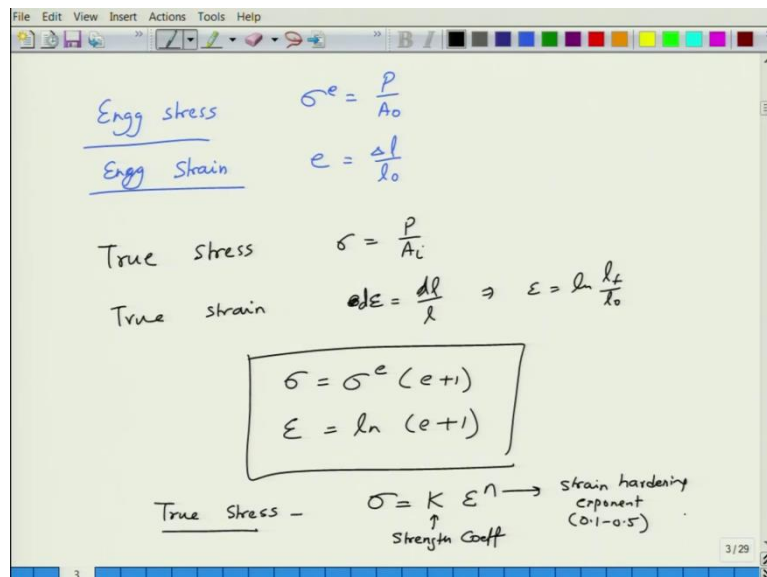 File Edit View Insert Actions Tools Help
B I
Engg stress σᵉ = P/A₀
Engg Strain e = Δl/l₀
True stress σ = P/Aᵢ
True strain dε = dl/l ⇒ ε = ln l_f/l₀
σ = σᵉ (e+1)
ε = ln (e+1)
True Stress – σ = K εⁿ → strain hardening
exponent
(0.1-0.5)
↑
Strength Coeff
3/29
3